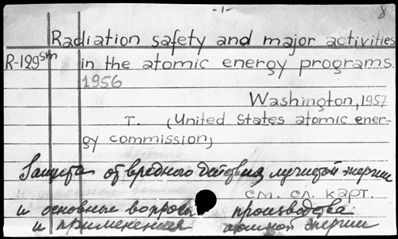 -1- 8
Radiation safety and major activities
R-129sm in the atomic energy programs.
1956
Washington, 1957
T. (United States atomic ener-
gy commission)
Защита от вредного действия лучистой энергии
см. сл. карт.
и основные вопросы производства
и применения атомной энергии